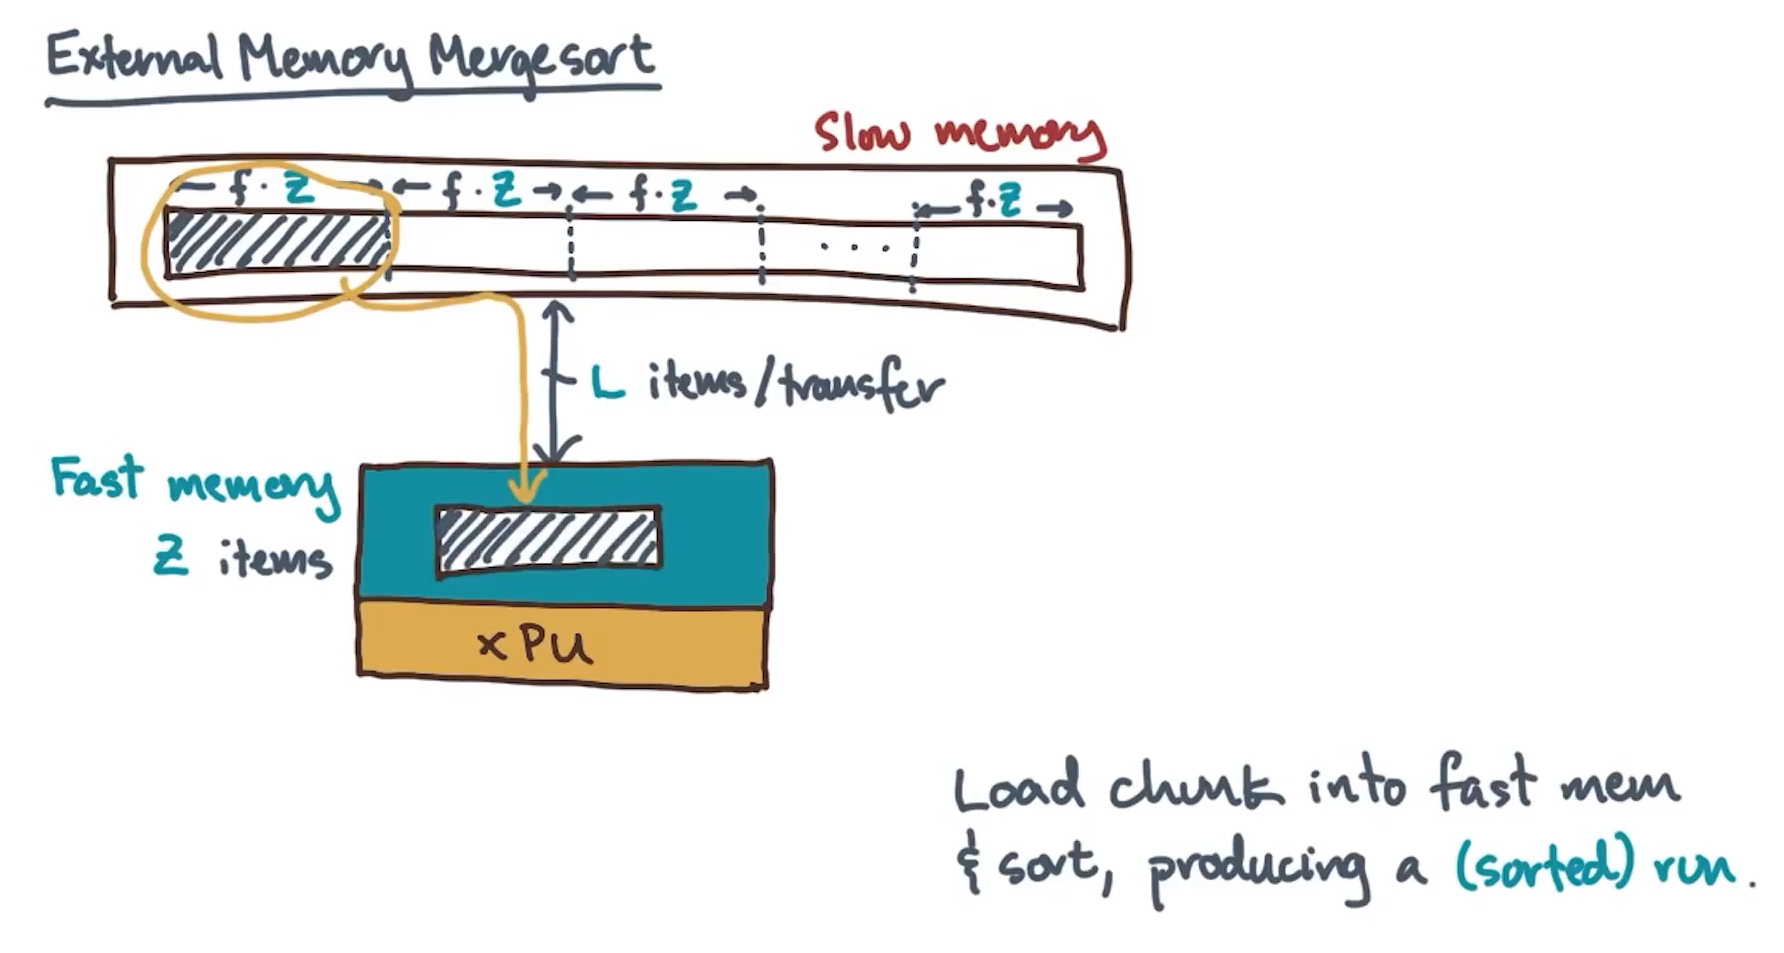 External Memory Mergesort
Slow memory
← f · Z → ← f · Z → ← f · Z → ← f · Z →
. . .
L items/transfer
Fast memory
Z items
xPU
Load chunk into fast mem
& sort, producing a (sorted) run.